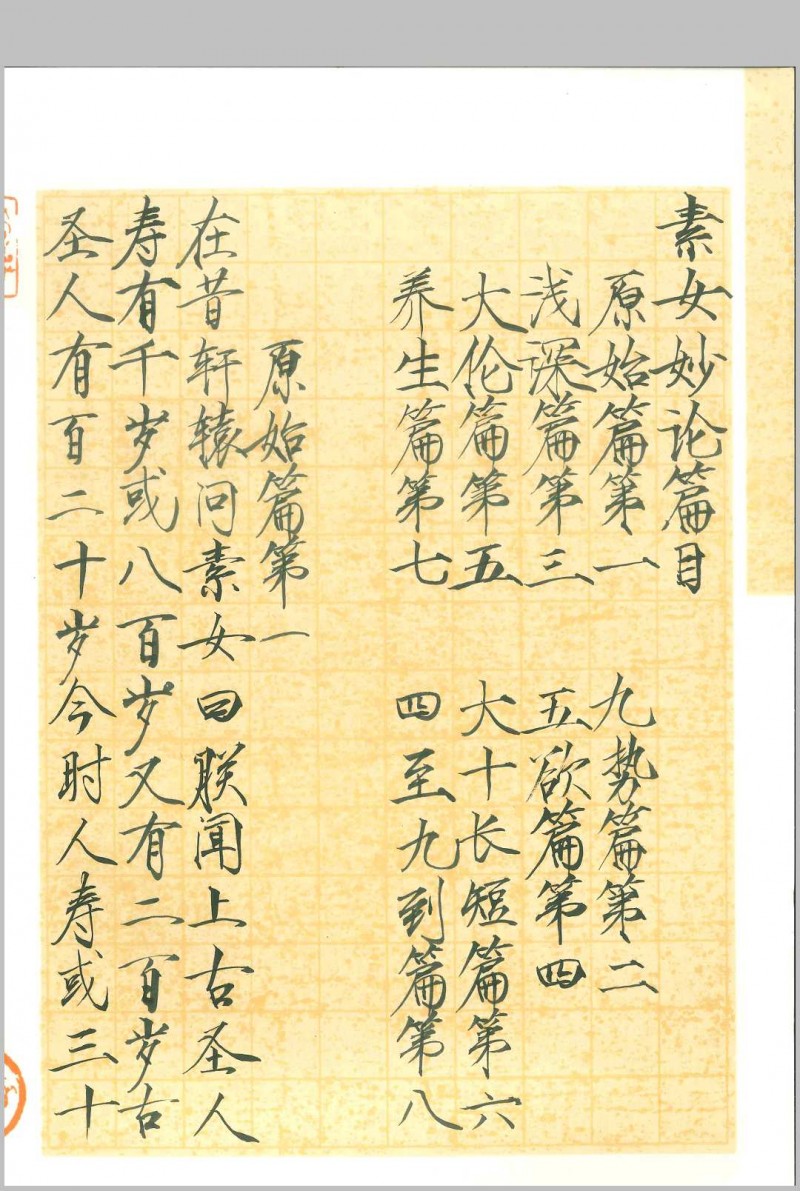 素女妙论篇目
原始篇第一　九势篇第二
浅深篇第三　五欲篇第四
大伦篇第五　大十长短篇第六
养生篇第七　四至九到篇第八
原始篇第一
在昔轩辕问素女曰朕闻上古圣人
寿有千岁或八百岁又有二百岁古
圣人有百二十岁今时人寿或三十